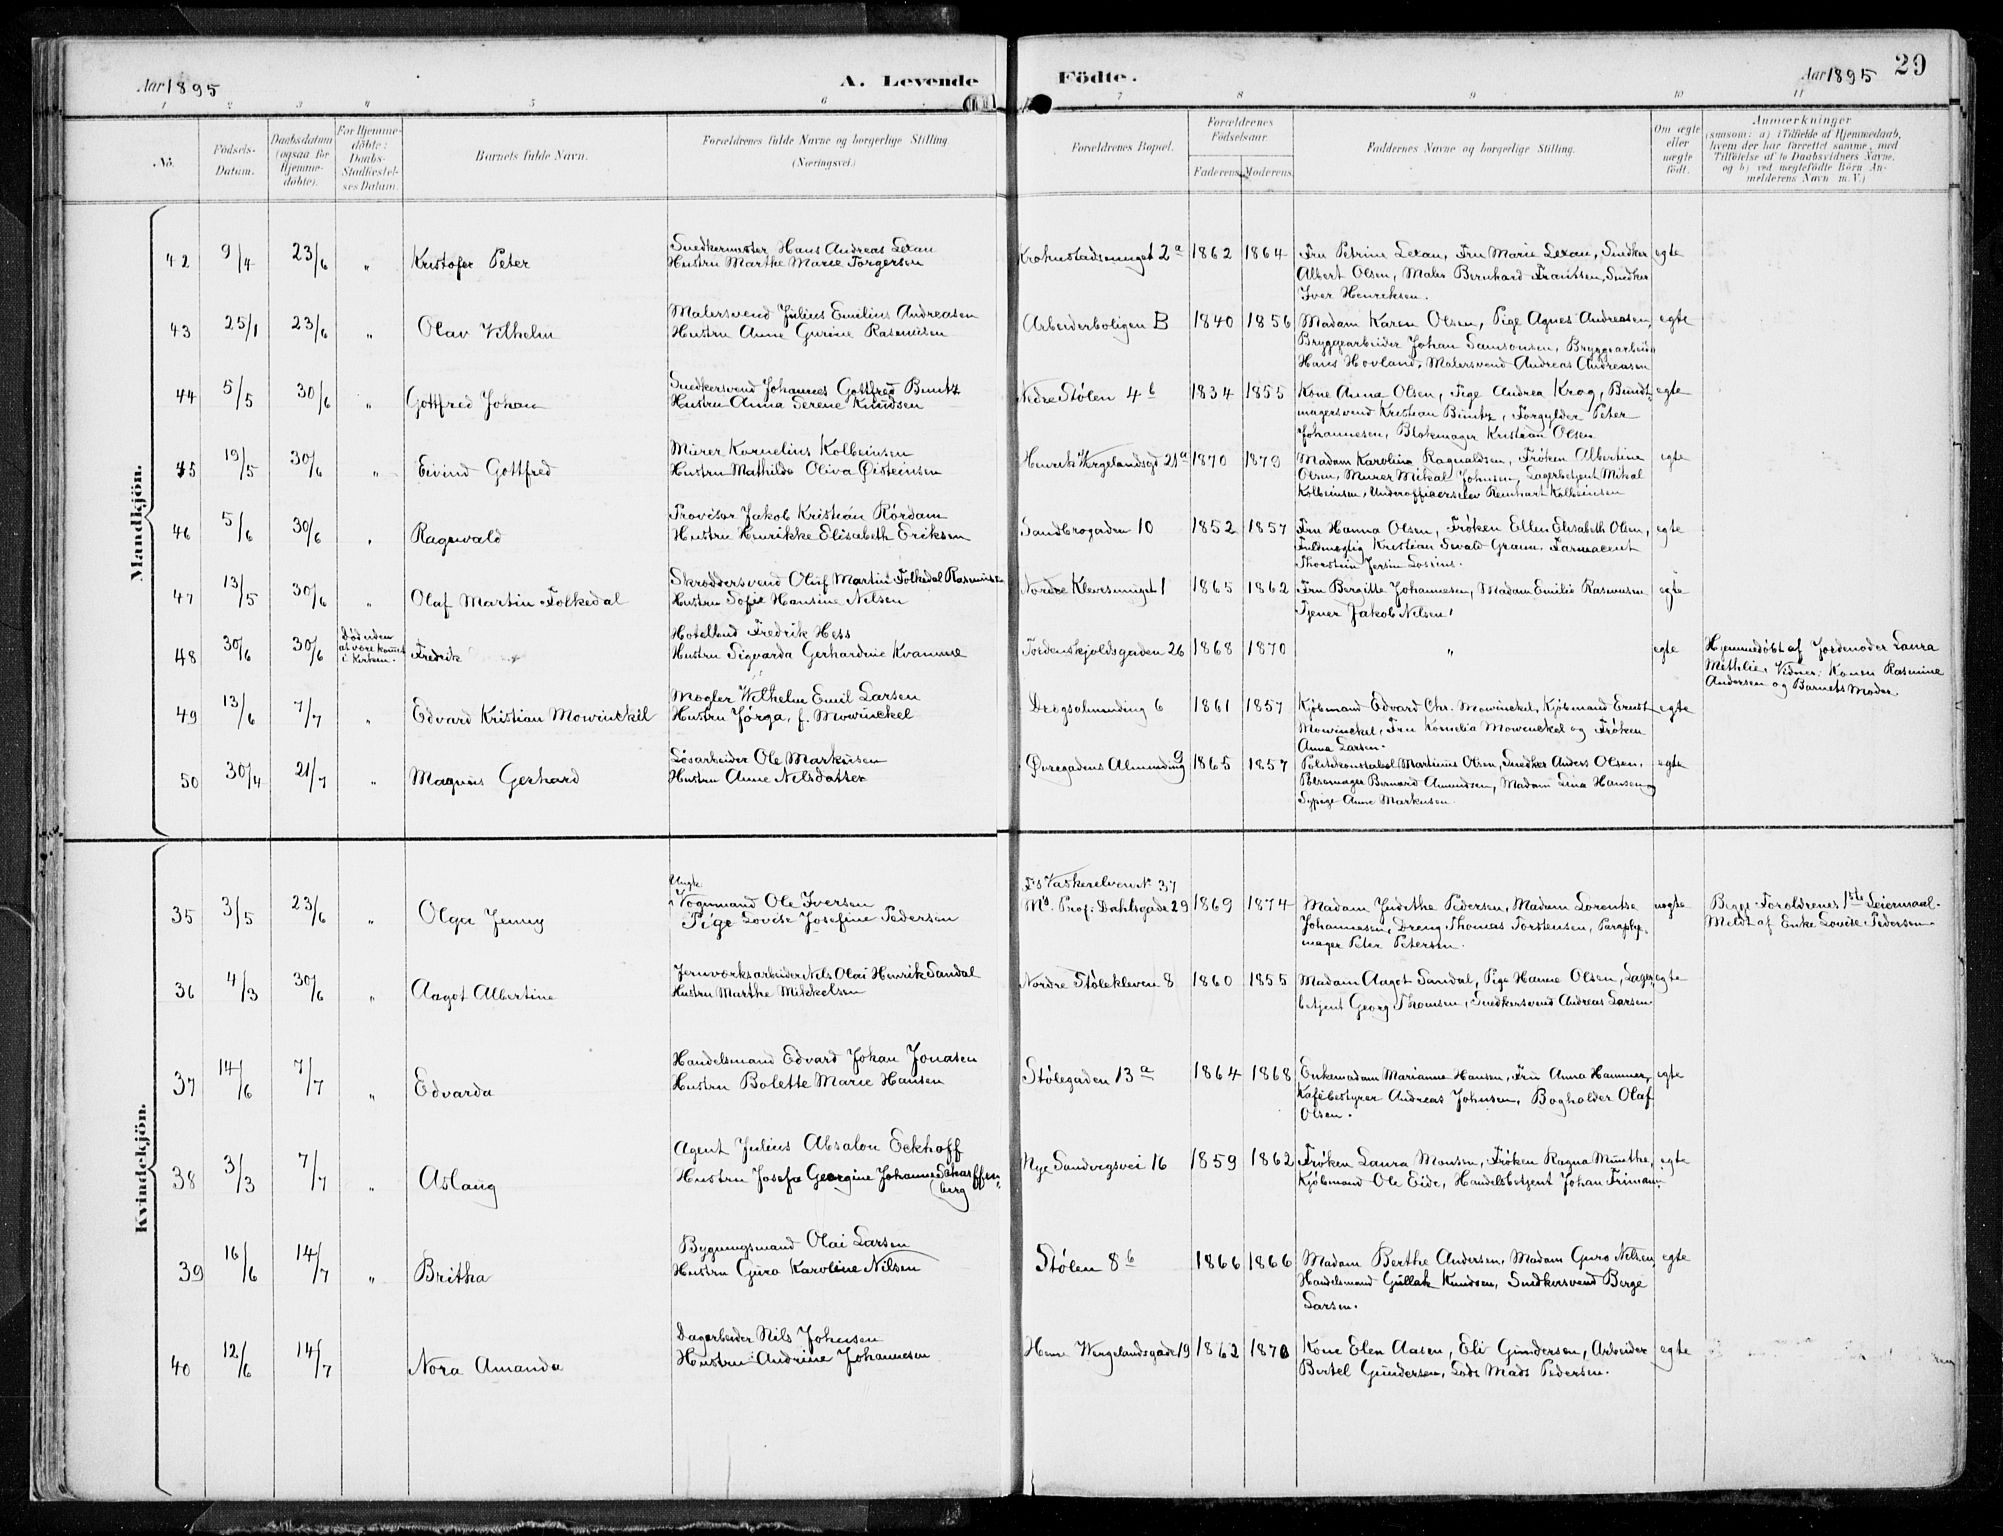 Aar 1895 A. Levende Födte. Aar 1895 29
1 2 3 4 5 6 7 8 9 10 11
No.
Födsels-
Datum.
Daabsdatum
(ogsaa for
Hjemme-
döbte).
For Hjemme-
döbte:
Daabs-
Stadfæstel-
ses Datum.
Barnets fulde Navn.
Forældrenes fulde Navne og borgerlige Stilling
(Næringsvei.)
Forældrenes Bopæl.
Forældrenes
Födselsaar.
Faderens. Moderens.
Faddernes Navne og borgerlige Stilling.
Om ægte
eller
uægte
födt.
Anmærkninger
(saasom: a) i Tilfælde af Hjemmedaab,
hvem der har forrettet samme, med
Tilföielse af to Daabsvidners Navne,
og b) ved uægtefödte Börn An-
melderens Navn m. V.)
Mandkjön.
42 9/4 23/6 " Kristofer Peter
Snedkermester Hans Andreas Lexau
Hustru Marthe Marie Torgersen
Krohnstadsmuget 2a 1862 1864
Fru Petrine Lexau, Fru Marie Lexau, Snedker
Albert Olsen, Maler Bernhard Frantsen, Snedker
Iver Henriksen.
egte
43 25/1 23/6 " Olav Vilhelm
Malersvend Julius Emilius Andreasen
Hustru Anne Gurine Rasmusen
Arbeiderboligen B 1840 1856
Madam Karen Olsen, Pige Agnes Andreasen,
Bryggearbeider Johan Samsonsen, Bryggearbeider
Hans Hovland, Malersvend Andreas Andreasen
egte
44 5/5 30/6 " Gottfred Johan
Snedkersvend Johannes Gottfred Buntz
Hustru Anna Serene Knudsen
Nedre Stølen 4b 1834 1855
Kone Anna Olsen, Pige Andrea Krog, Bundt-
magersvend Kristian Buntz, Forgylder Peter
Johannesen, Blokmager Kristian Olsen
egte
45 19/5 30/6 " Eivind Gottfred
Murer Kornelius Kolbeinsen
Hustru Mathilde Oliva Øisteinsen
Henrik Wergelandsgd 21a 1870 1879
Madam Karolina Ragnaldsen, Frøken Albertine
Olsen, Murer Mikal Johnsen, Lagerbetjent Mikal
Kolbeinsen, Underofficerselev Reinhart Kolbeinsen
egte
46 5/6 30/6 " Ragnvald
Provisor Jakob Kristian Rørdam
Hustru Henrikke Elisabeth Eriksen
Sandbrogaden 10 1852 1857
Fru Hanna Olsen, Frøken Ellen Elisabeth Olsen,
Fuldmægtig Kristian Sevald Gramm, Farmaceut
Thorstein Jersin Lossius.
egte
47 13/5 30/6 " Olaf Martin Folkedal
Skræddersvend Oluf Martin Folkedal Rasmusen
Hustru Sofie Hansine Nilsen
Nordre Kleivesmuget 1 1865 1862
Fru Bergitte Johannesen, Madam Emilie Rasmusen
Tjener Jakob Nilsen
egte
48 30/6 30/6
Død uden
at være kommet
i Kirken.
Fredrik
Hotelbud Fredrik Hess
Hustru Sigvarda Gerhardine Kvamme
Tordenskjoldsgaden 26 1868 1870 "
egte
Hjemmedøbt af Jordemoder Laura
Methlie, Vidner: Konen Rasmine
Andersen og Barnets Moder
49 13/6 7/7 " Edvard Kristian Mowinckel
Mægler Wilhelm Emil Larsen
Hustru Jørga, f. Mowinckel
Dregsalmending 6 1861 1857
Kjøbmand Edvard Chr. Mowinckel, Kjøbmand Ernst
Mowinckel, Fru Kornelia Mowinckel og Frøken
Anna Larsen.
egte
50 30/4 21/7 " Magnus Gerhard
Løsarbeider Ole Markusen
Hustru Anne Nelsdatter
Øvregadens Almending 9 1865 1857
Politikonstabel Martinus Olsen, Snedker Anders Olsen,
Pølsemager Bernard Amundsen, Madam Lina Hansen og
Sypige Anne Markusen.
egte
Kvindekjön.
35 3/5 23/6 " Olga Jenny
Ungk.
Vognmand Ole Iversen
Pige Lovise Josefine Pedersen
Fs Vaskerelven No 37
Ms. Prof: Dahlsgade 29 1869 1874
Madam Judithe Pedersen, Madam Lorentse
Johannesen, Dreng Thomas Torstensen, Paraply-
mager Peter Petersen.
uegte
Begge Foreldrenes 1ste Leiermaal.
Meldt af Enke Lovise Pedersen
36 4/3 30/6 " Aagot Albertine
Jernværksarbeider Nils Olai Henrik Sandal
Hustru Marthe Mikkelsen
Nordre Stølekleven 8 1860 1855
Madam Aagot Sandal, Pige Hanne Olsen, Lager-
betjent Georg Thomsen, Snedkersvend Andreas Larsen
egte
37 14/6 7/7 " Edvarda
Handelsmand Edvard Johan Jonasen
Hustru Bolette Marie Hansen
Stølegaden 13a 1864 1868
Enkemadam Marianne Hansen, Fru Anna Hammer,
Kafebestyrer Andreas Johnsen, Bogholder Olaf
Olsen.
egte
38 3/3 7/7 " Aslaug
Agent Julius Absalon Eckhoff
Hustru Josefa Georgine Johanne Scharffen-
berg
Nye Sandvigsvei 16 1859 1862
Frøken Laura Monsen, Frøken Ragna Munthe,
Kjøbmand Ole Eide, Handelsbetjent Johan Frimann.
egte
39 16/6 14/7 " Britha
Bygningsmand Olai Larsen
Hustru Guro Karoline Nilsen
Stølen 8b 1866 1866
Madam Berthe Andersen, Madam Guro Nilsen,
Handelsmand Gullak Knudsen, Snedkersvend Berge
Larsen.
egte
40 12/6 14/7 Nora Amanda
Dagarbeider Nils Johnsen
Hustru Andrine Johannesen
Henr Wergelandsgade 19 1862 1870
Kone Elen Aasen, Eli Gundersen, Arbeider
Bertel Gundersen, Lods Mads Pedersen.
egte